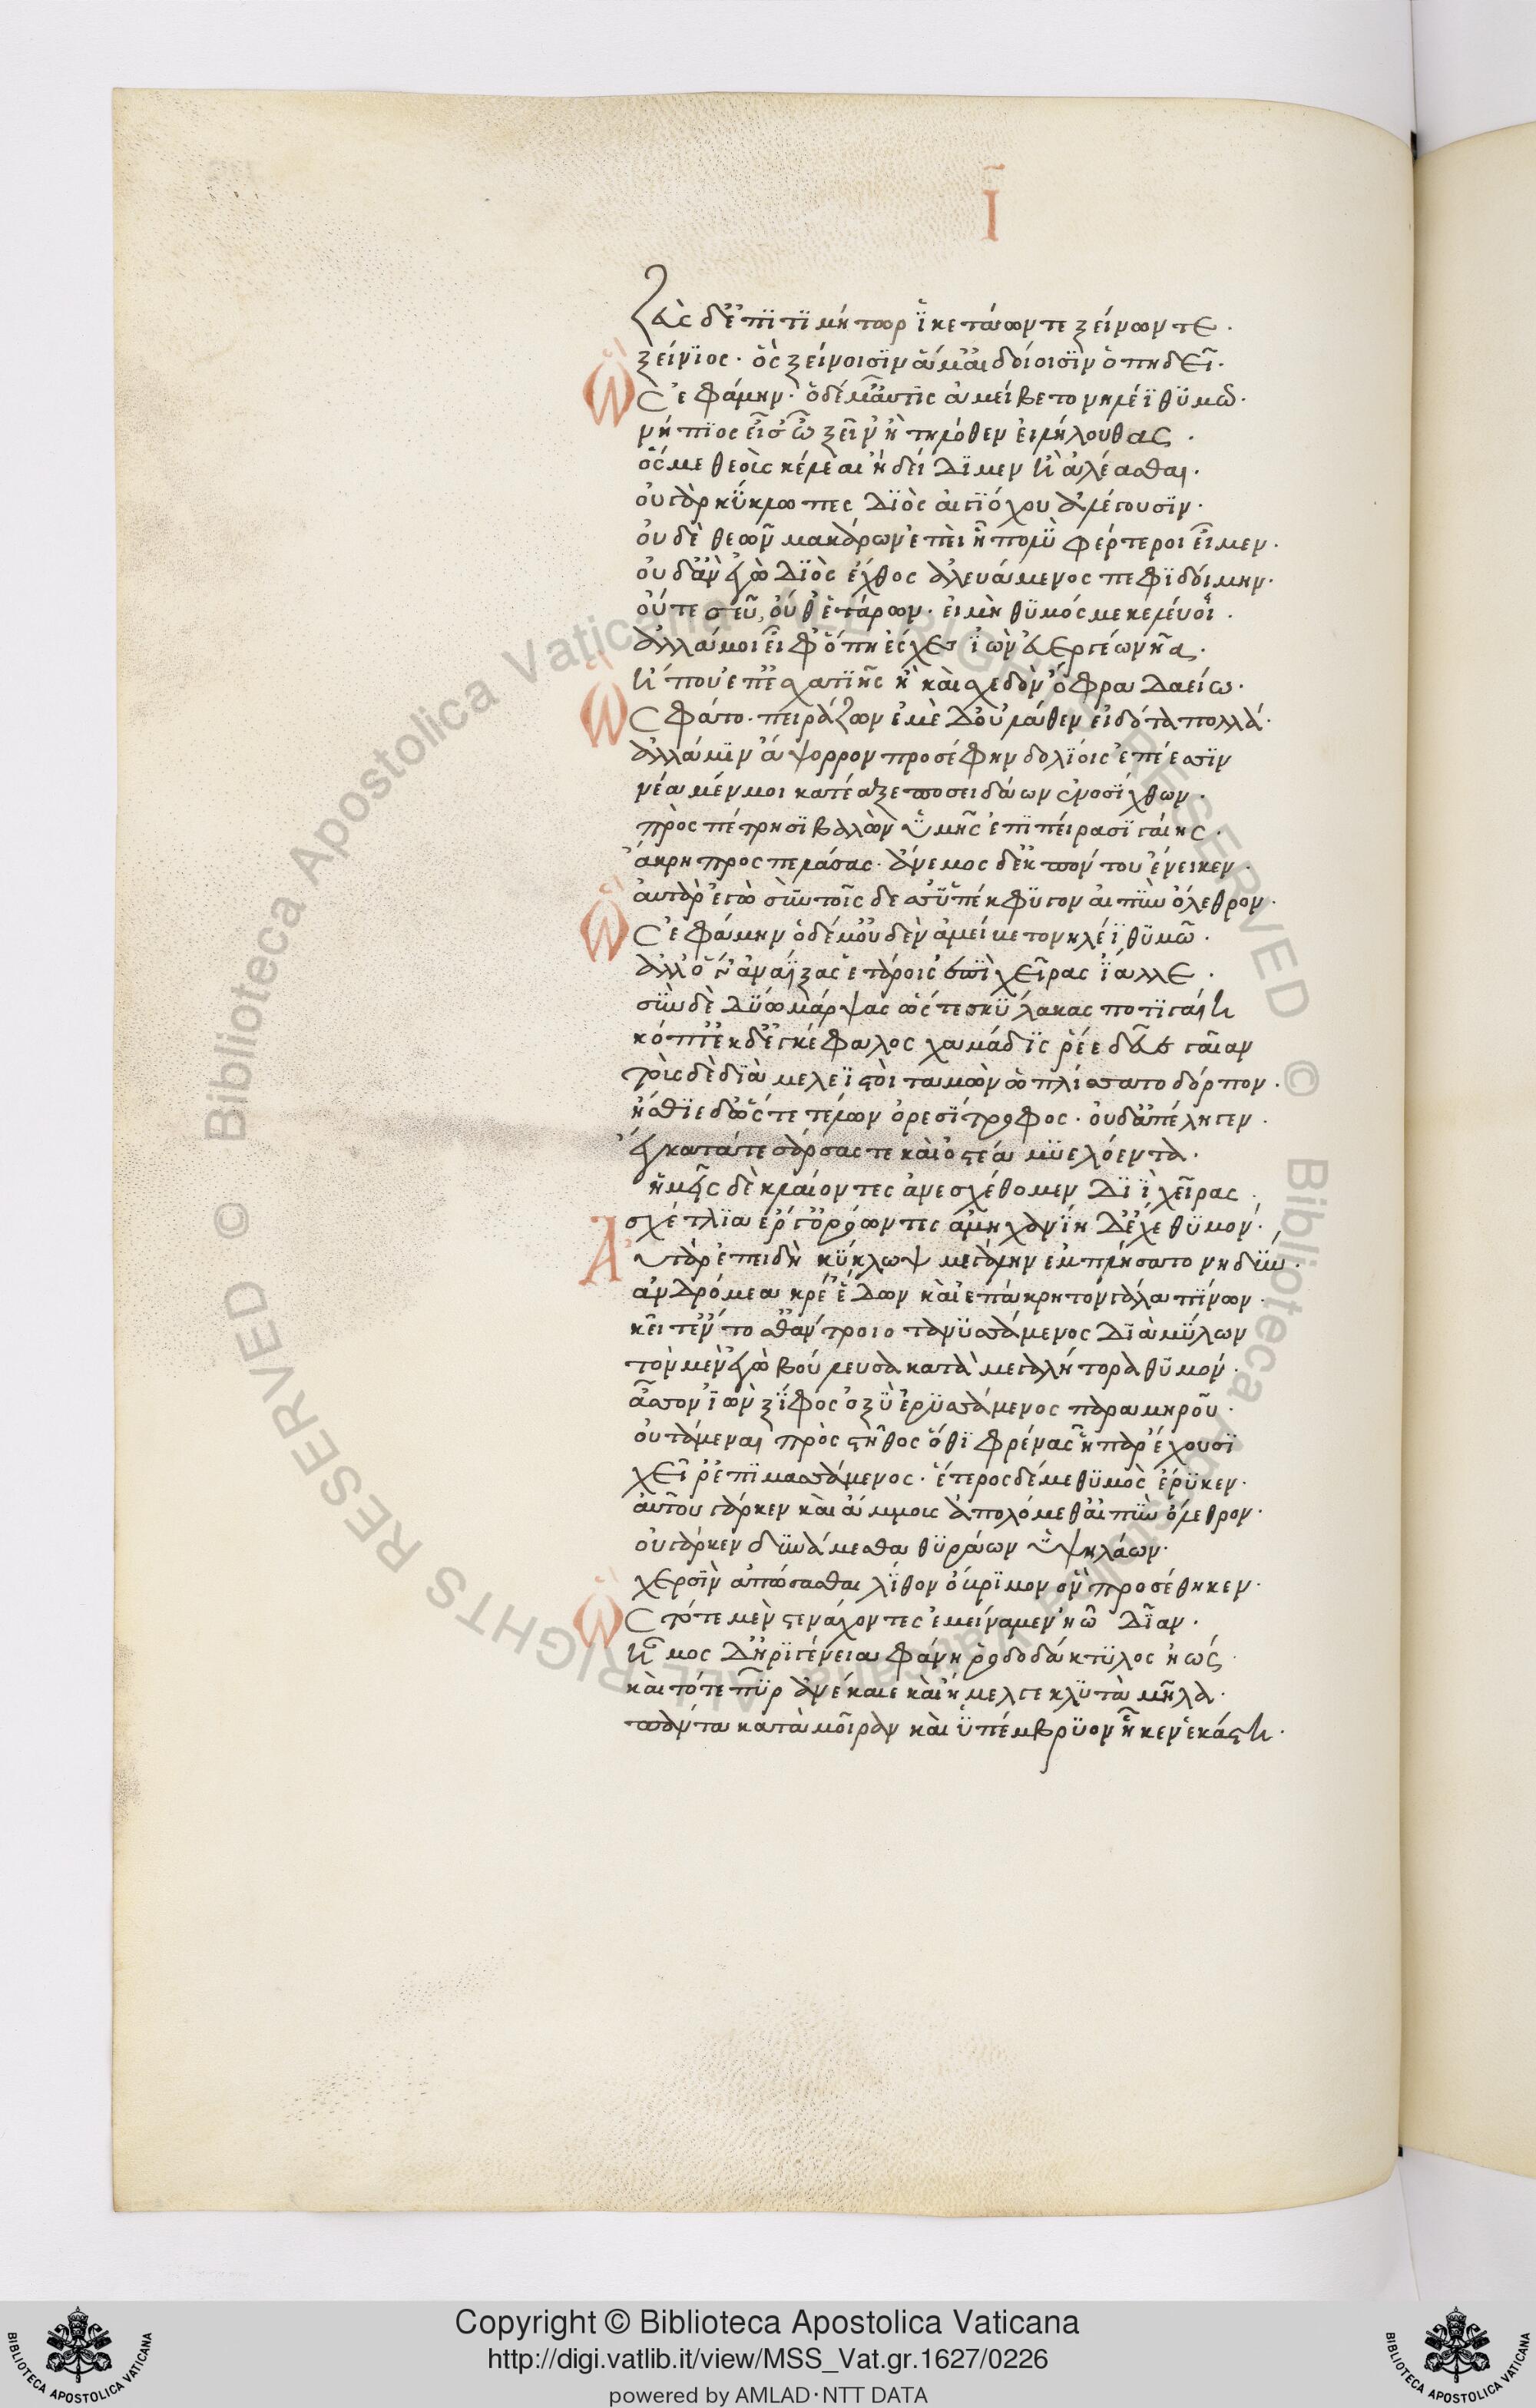 Ῑ
Ζεὺς δ' ἐπιτιμήτωρ ἱκετάων τε ξείνων τε·
ξείνιος· ὃς ξείνοισιν ἅμ' αἰδοίοισιν ὀπηδεῖ·
Ὣς ἐφάμην· ὁ δέ μ' αὖτις ἀμείβετο νηλέϊ θυμῷ·
νήπιος εἶς ὦ ξεῖν' ἢ τηλόθεν εἰλήλουθας·
ὅς με θεοὺς κέλεαι ἢ δειδίμεν ἢ ἀλέασθαι·
οὐ γὰρ κύκλωπες Διὸς αἰγιόχου ἀλέγουσιν·
οὐδὲ θεῶν μακάρων ἐπεὶ ἦ πολὺ φέρτεροι εἶμεν·
οὐδ' ἂν ἐγὼ Διὸς ἔχθος ἀλευάμενος πεφιδοίμην·
οὔτε σεῦ, οὔθ' ἑτάρων· εἰ μὴ θυμός με κελεύοι·
ἀλλά μοι εἴφ' ὅπη ἔσχες ἰὼν εὐεργέα νῆα·
ἤ που ἐπ' ἐσχατιῆς ἢ καὶ σχεδὸν ὄφρα δαείω·
Ὣς φάτο· πειράζων ἐμὲ δ' οὐ λάθεν εἰδότα πολλά·
ἀλλά μιν ἄψορρον προσέφην δολίοις ἐπέεσσιν
νέα μέν μοι κατέαξε ποσειδάων ἐνοσίχθων·
πρὸς πέτρῃσι βαλὼν ὑμῆς ἐπὶ πείρασι γαίης·
ἄκρῃ προσπελάσας· ἄνεμος δ' ἐκ πόντου ἔνεικεν·
αὐτὰρ ἐγὼ σὺν τοῖσδε ὑπέκφυγον αἰπὺν ὄλεθρον·
Ὣς ἐφάμην ὁ δέ μ' οὐδὲν ἀμείβετο νηλέϊ θυμῷ·
ἀλλ' ὅ γ' ἀναΐξας ἑτάροις ἐπὶ χεῖρας ἴαλλε·
σὺν δὲ δύω μάρψας ὥς τε σκύλακας ποτὶ γαίῃ
κόπτ' ἐκ δ' ἐγκέφαλος χαμάδις ῥέε δεῦε γαῖαν
τοὺς δὲ διὰ μελεϊστὶ ταμὼν ὡπλίσσατο δόρπον·
ἤσθιε δ' ὥς τε λέων ὀρεσίτροφος· οὐδ' ἀπέλειπεν·
ἔγκατά τε σάρκας τε καὶ ὀστέα μυελόεντα·
ἡμεῖς δὲ κλαίοντες ἀνεσχέθομεν Διῒ χεῖρας·
σχέτλια ἔργ' ὁρόωντες ἀμηχανίη δ' ἔχε θυμόν·
Αὐτὰρ ἐπειδὴ κύκλωψ μεγάλην ἐμπλήσατο νηδύν·
ἀνδρόμεα κρέ' ἔδων καὶ ἐπ' ἄκρητον γάλα πίνων·
κεῖτ' ἔντοσθ' ἄντροιο τανυσσάμενος διὰ μήλων
τὸν μὲν ἐγὼ βούλευσα κατὰ μεγαλήτορα θυμόν·
ἆσσον ἰὼν ξίφος ὀξὺ ἐρυσσάμενος παρὰ μηροῦ·
οὐτάμεναι πρὸς στῆθος ὅθι φρένας ἧπαρ ἔχουσι
χεῖρ' ἐπιμασσάμενος· ἕτερος δέ με θυμὸς ἔρυκεν·
αὐτοῦ γάρ κεν καὶ ἄμμες ἀπολόμεθ' αἰπὺν ὄλεθρον·
οὐ γάρ κεν δυνάμεσθα θυράων ὑψηλάων·
χερσὶν ἀπώσασθαι λίθον ὄβριμον ὃν προσέθηκεν·
Ὣς τότε μὲν στενάχοντες ἐμείναμεν ἠῶ δῖαν·
ἦμος δ' ἠριγένεια φάνη ῥοδοδάκτυλος ἠώς·
καὶ τότε πῦρ ἀνέκαιε καὶ ἤμελγε κλυτὰ μῆλα·
πάντα κατὰ μοῖραν καὶ ὑπ' ἔμβρυον ἧκεν ἑκάστῃ·
Copyright © Biblioteca Apostolica Vaticana
http://digi.vatlib.it/view/MSS_Vat.gr.1627/0226
powered by AMLAD·NTT DATA
BIBLIOTECA APOSTOLICA VATICANA
BIBLIOTECA APOSTOLICA VATICANA
Biblioteca Apostolica Vaticana ALL RIGHTS RESERVED © Biblioteca Apostolica Vaticana ALL RIGHTS RESERVED ©